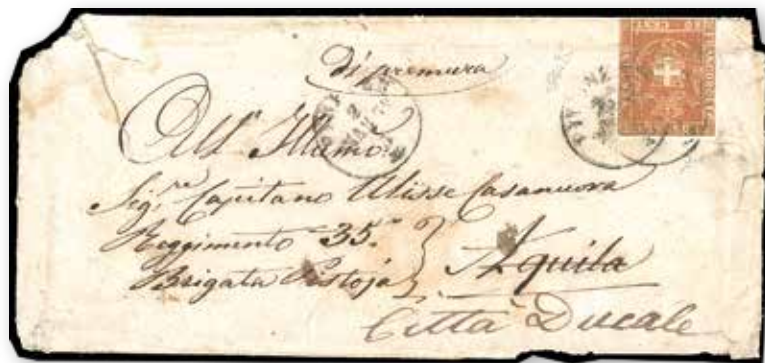 di premura
All' Illmo.
Sig.re Capitano Ulisse Casanuova
Reggimento 35.o
Brigata Pistoja
Aquila
Città Ducale